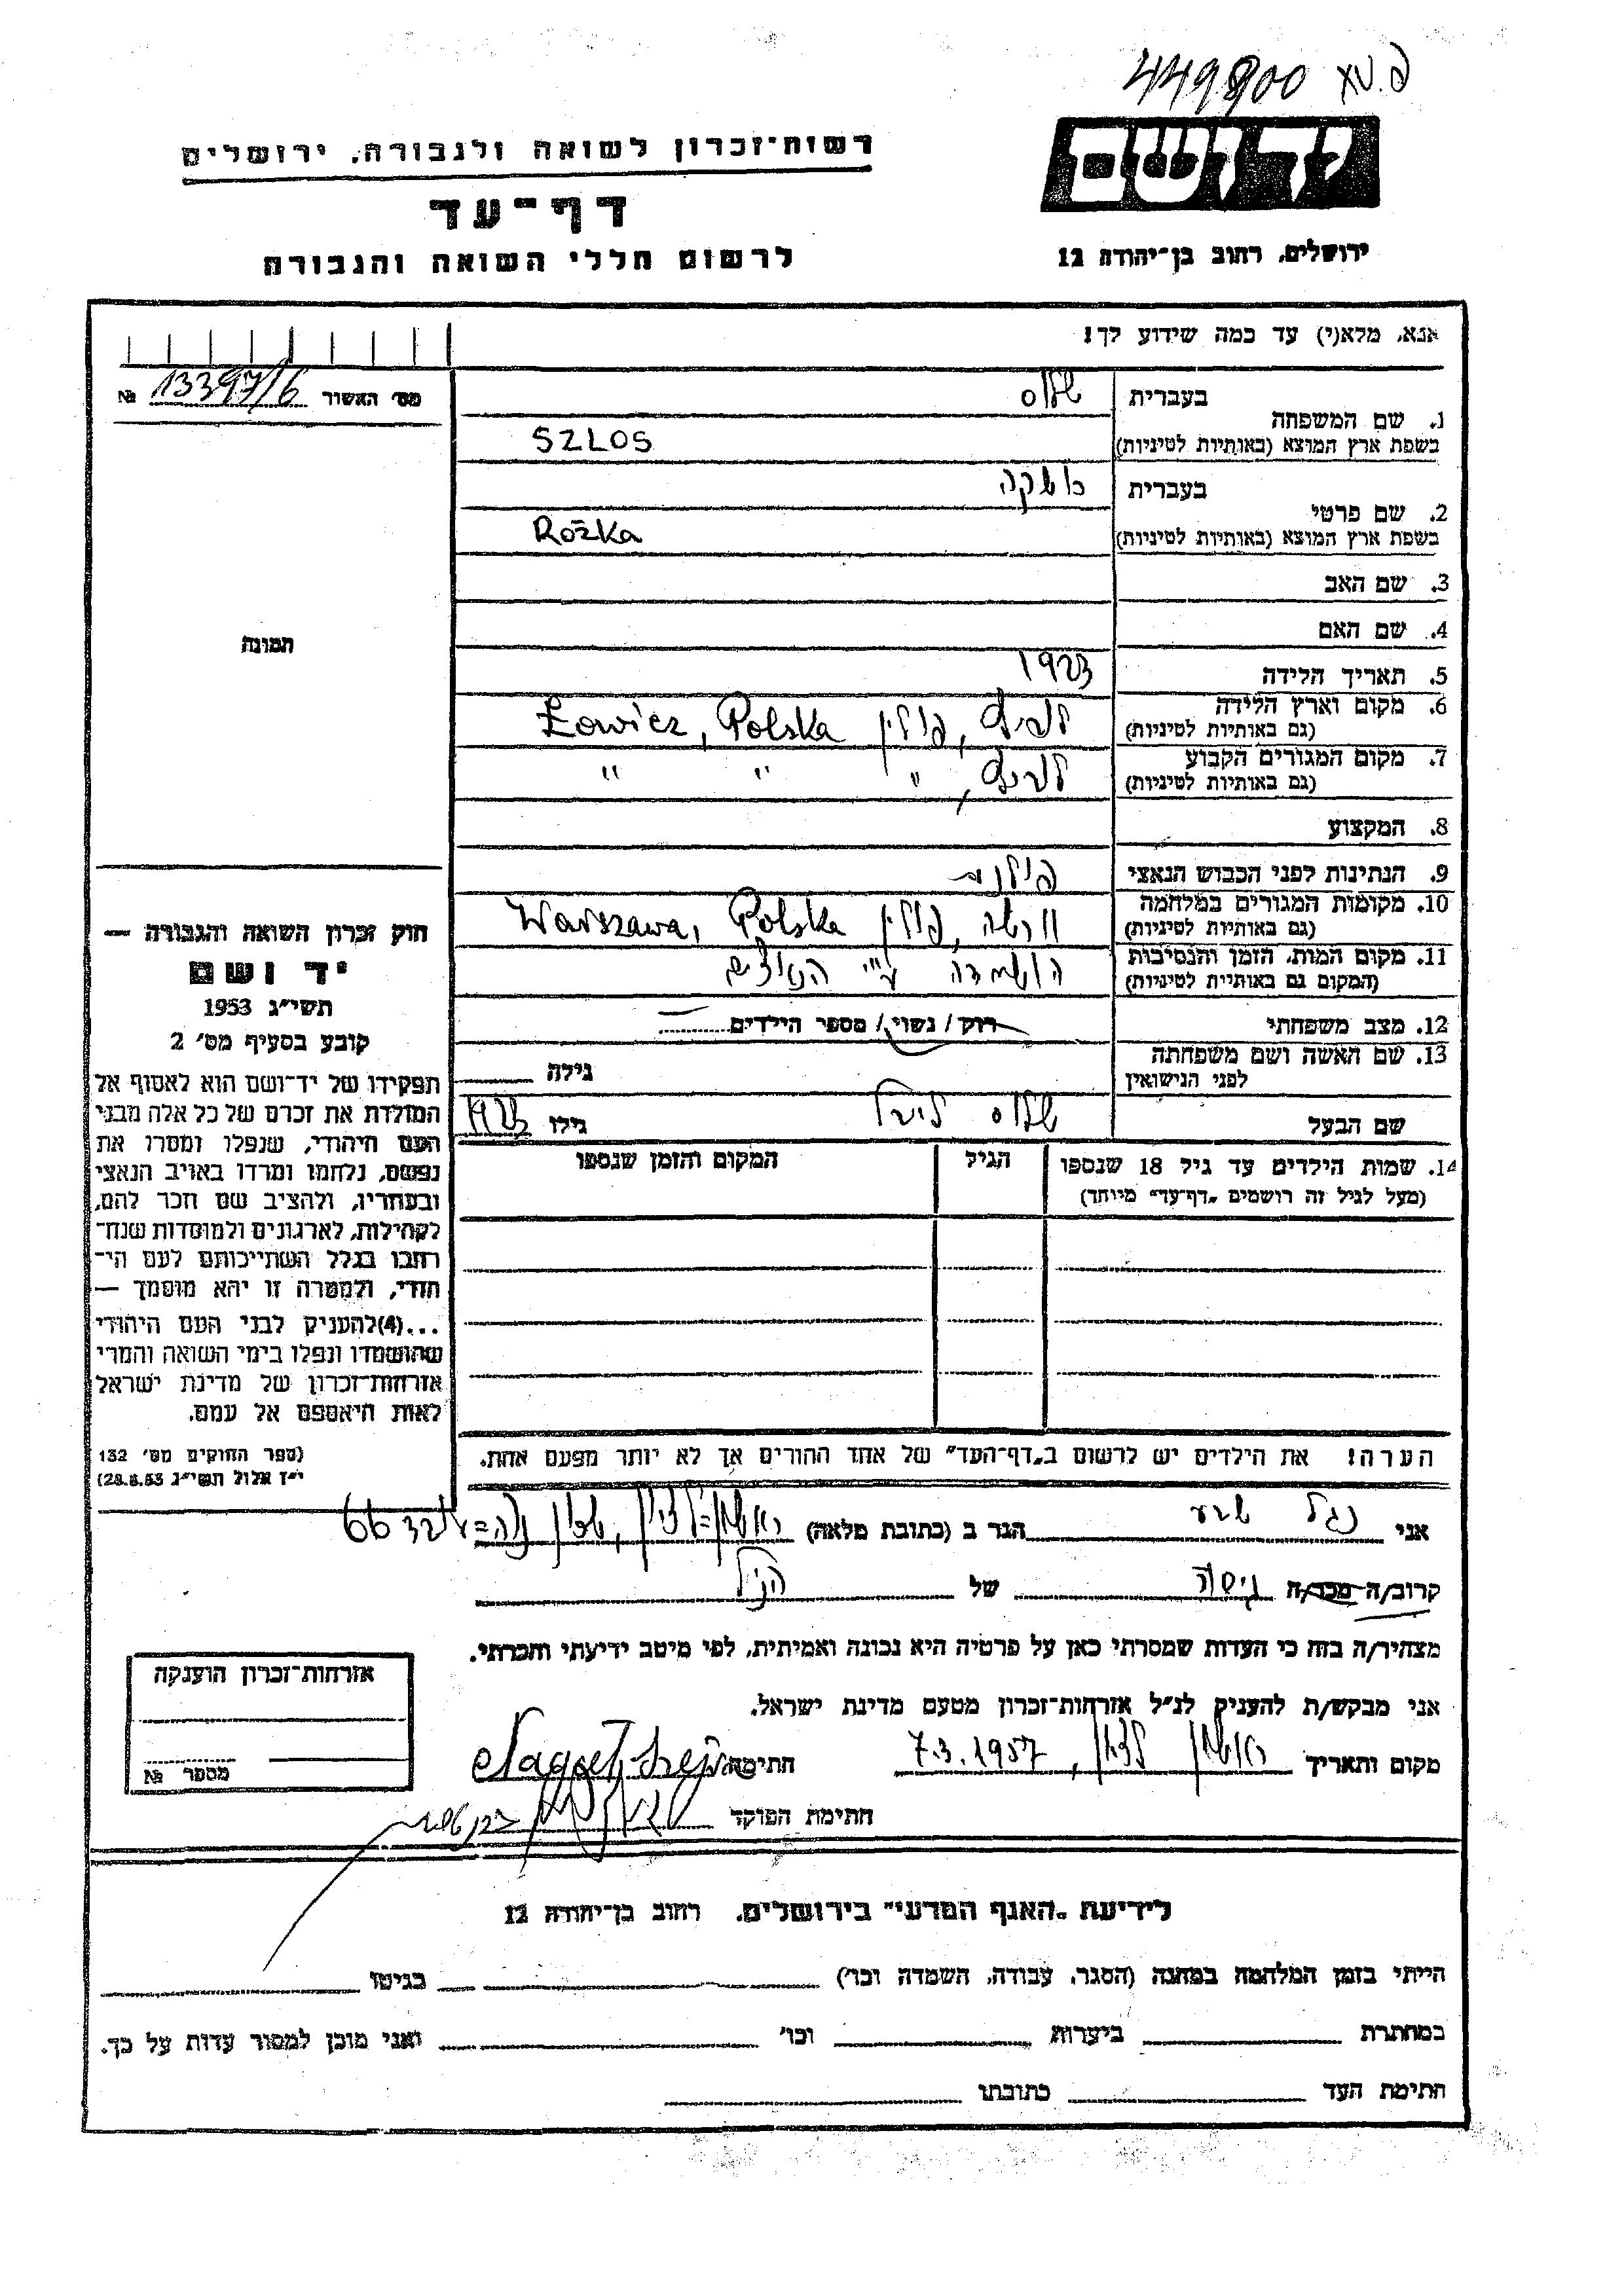 449800
יד ושם
רשות־זכרון לשואה ולגבורה, ירושלים
דף־עד
לרשום חללי השואה והגבורה
ירושלים, רחוב בן־יהודה 12
אנא, מלא(י) עד כמה שידוע לך!
מס׳ האשור 13397/6 №
1. שם המשפחה
בעברית שלוס
בשפת ארץ המוצא (באותיות לטיניות) SZLOS
2. שם פרטי
בעברית
בשפת ארץ המוצא (באותיות לטיניות) Rożka
3. שם האב
4. שם האם
תמונה
5. תאריך הלידה 1923
6. מקום וארץ הלידה (גם באותיות לטיניות) לוביץ, פולין Łowicz, Polska
7. מקום המגורים הקבוע (גם באותיות לטיניות) לוביץ, " " "
8. המקצוע
9. הנתינות לפני הכבוש הנאצי פולנית
10. מקומות המגורים במלחמה (גם באותיות לטיניות) ורשה, פולין Warszawa, Polska
11. מקום המות, הזמן והנסיבות (המקום גם באותיות לטיניות) הושמדה ע"י הנאצים
12. מצב משפחתי רוק / נשוי / מספר הילדים
13. שם האשה ושם משפחתה לפני הנישואין גילה
שם הבעל שלוס גילו
14. שמות הילדים עד גיל 18 שנספו (מעל לגיל זה רושמים „דף־עד״ מיוחד)
הגיל
המקום והזמן שנספו
הערה! את הילדים יש לרשום ב„דף־העד״ של אחד ההורים אך לא יותר מפעם אחת.
חוק זכרון השואה והגבורה —
יד ושם
תשי״ג 1953
קובע בסעיף מס׳ 2
תפקידו של יד־ושם הוא לאסוף אל
המולדת את זכרם של כל אלה מבני
העם היהודי, שנפלו ומסרו את
נפשם, נלחמו ומרדו באויב הנאצי
ובעוזריו, ולהציב שם וזכר להם,
לקהילות, לארגונים ולמוסדות שנח־
רבו בגלל השתייכותם לעם הי־
הודי, ולמטרה זו יהא מוסמך —
...(4)להעניק לבני העם היהודי
שהושמדו ונפלו בימי השואה והמרי
אזרחות־זכרון של מדינת ישראל
לאות היאספם אל עמם.
(ספר החוקים מס׳ 132
י״ז אלול תשי״ג 28.8.53)
אני נגל הגר ב (כתובת מלאה) ראשון־לציון, שכון
קרוב/ה מכר/ה גיסה של הנ"ל
מצהיר/ה בזה כי העדות שמסרתי כאן על פרטיה היא נכונה ואמיתית, לפי מיטב ידיעתי והכרתי.
אני מבקש/ת להעניק לנ״ל אזרחות־זכרון מטעם מדינת ישראל.
מקום ותאריך ראשון לציון, 7.3.1957 חתימה
חתימת הפוקד
אזרחות־זכרון הוענקה
מספר №
לידיעת „האגף המדעי״ בירושלים, רחוב בן־יהודה 12
הייתי בזמן המלחמה במחנה (הסגר, עבודה, השמדה וכו׳) בגיטו
במחתרת ביערות וכו׳ ואני מוכן למסור עדות על כך.
חתימת העד כתובתו